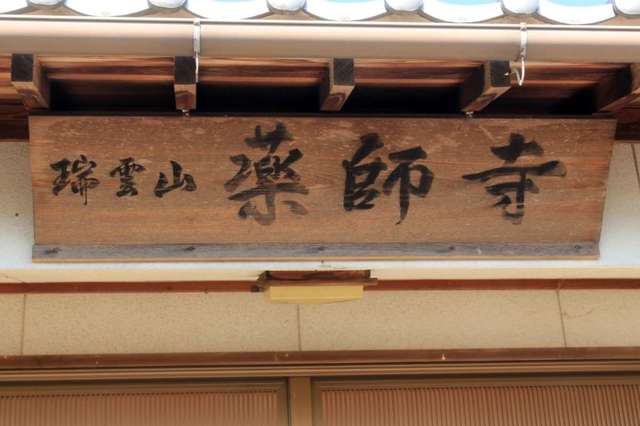 瑞雲山 薬師寺